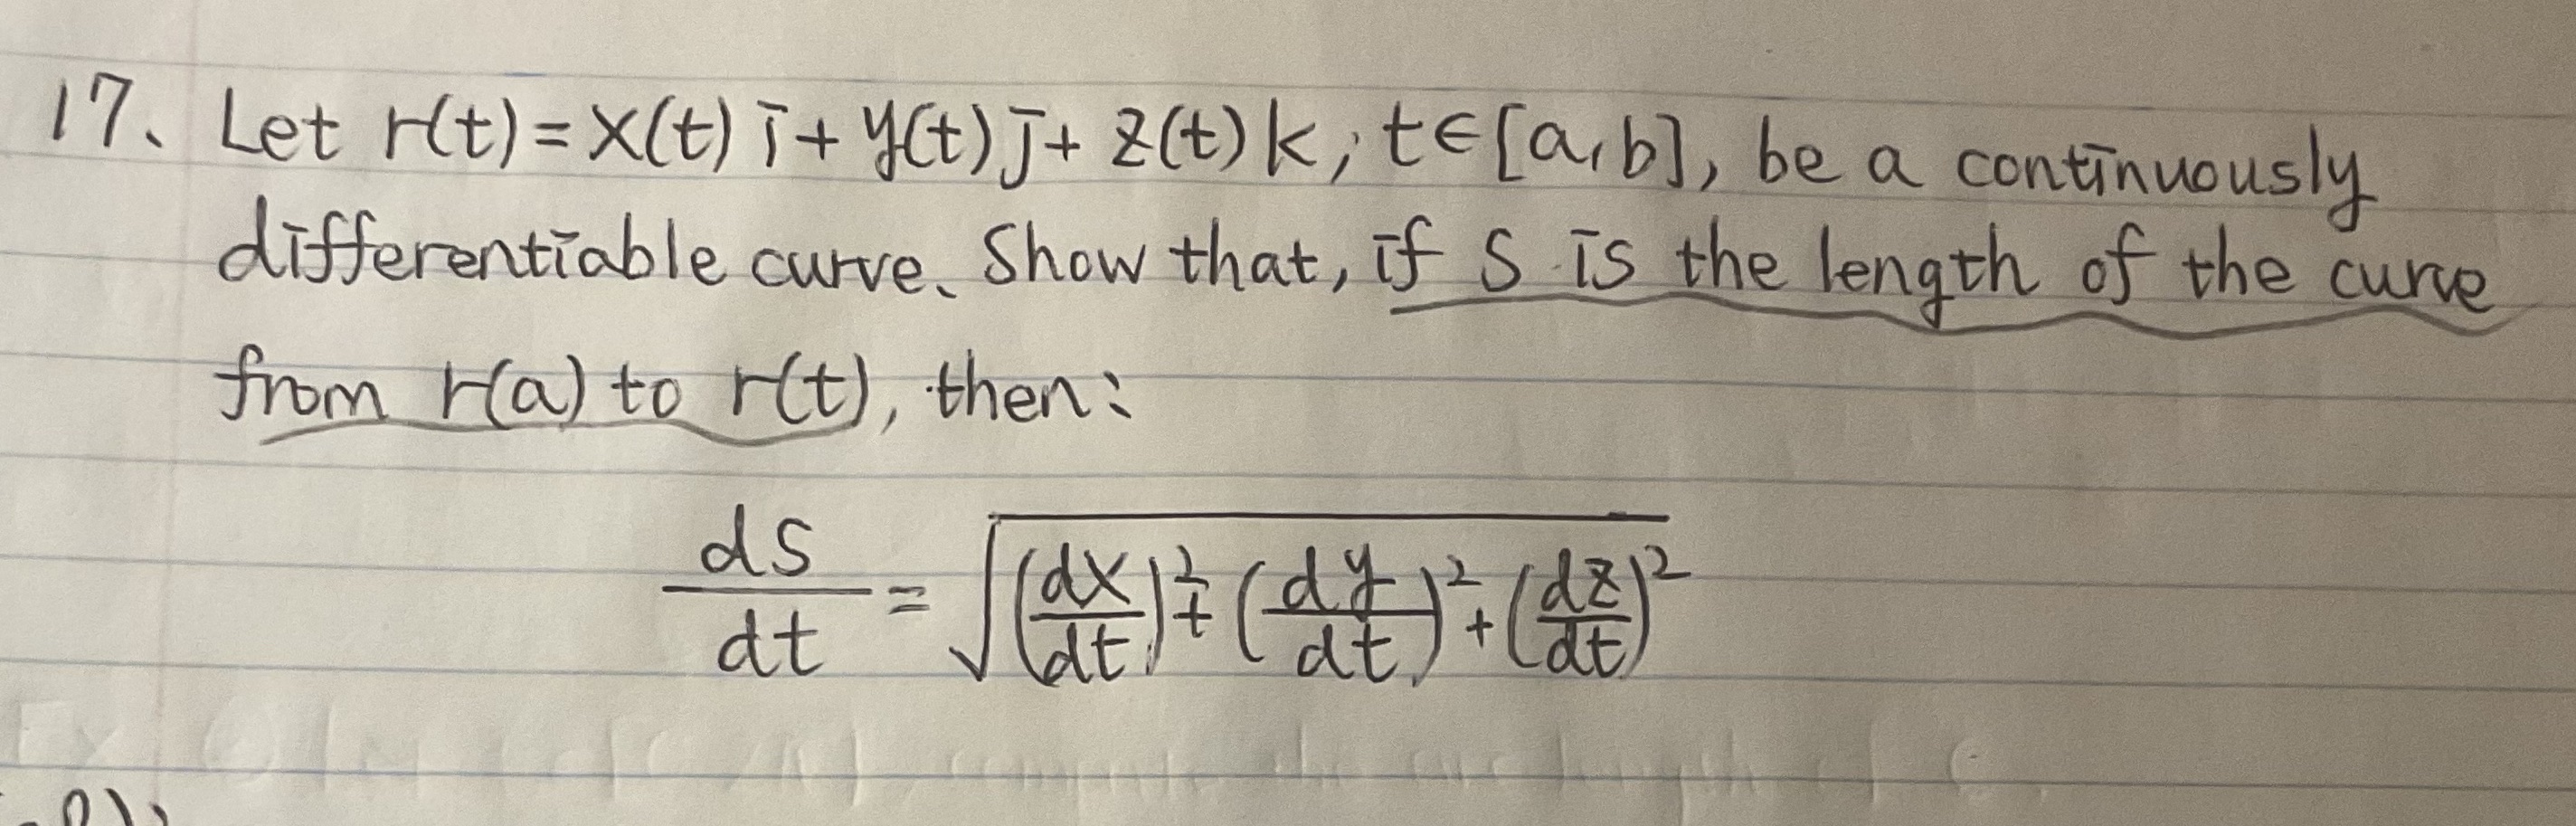 17. Let r(t)=x(t)i+y(t)j+z(t)k, t∈[a,b], be a continuously
differentiable curve. Show that, if S is the length of the curve
from r(a) to r(t), then:
dS/dt = √((dx/dt)²+(dy/dt)²+(dz/dt)²)